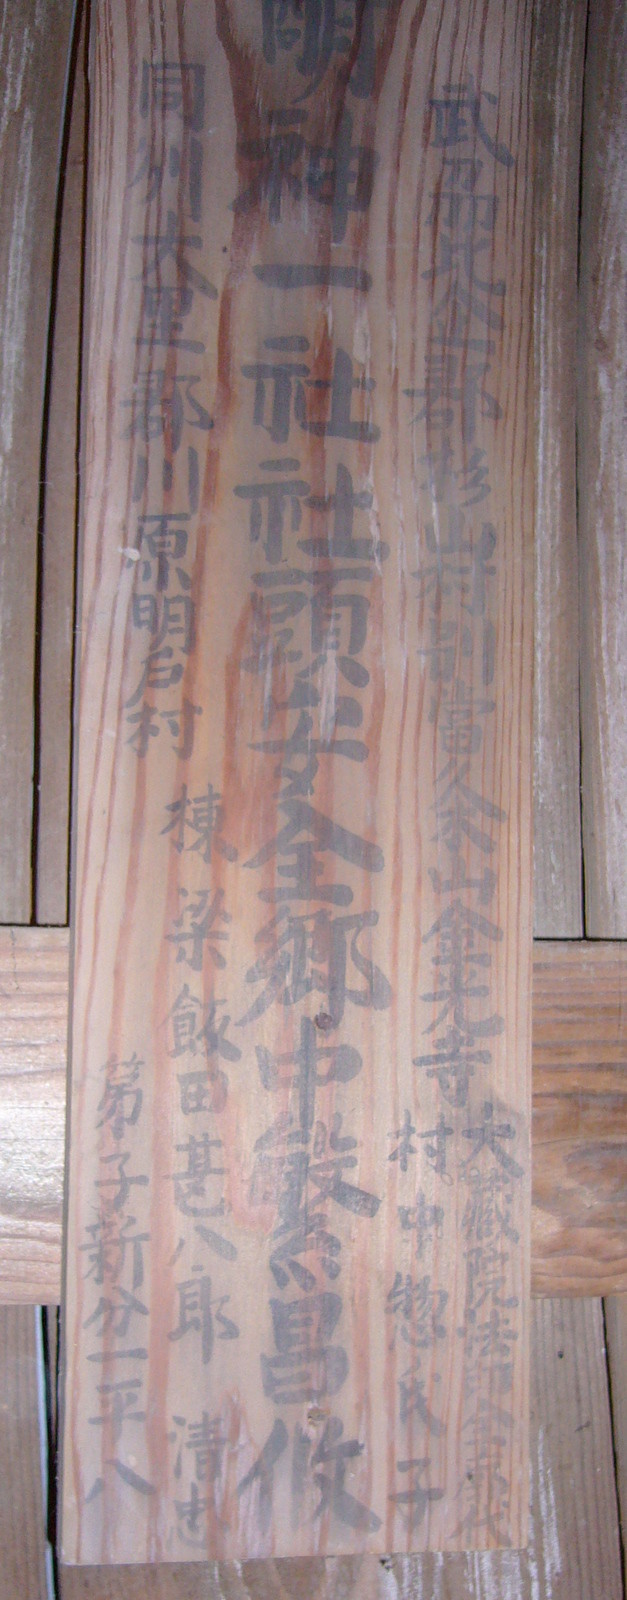 武刕比企郡杉山村別當久余山金光寺
大藏院法印全
村中惣氏子
明神一社社頭安全郷中繁昌攸
同州大里郡川原明戸村
棟梁飯田甚八郎 清忠
弟子新分一平八